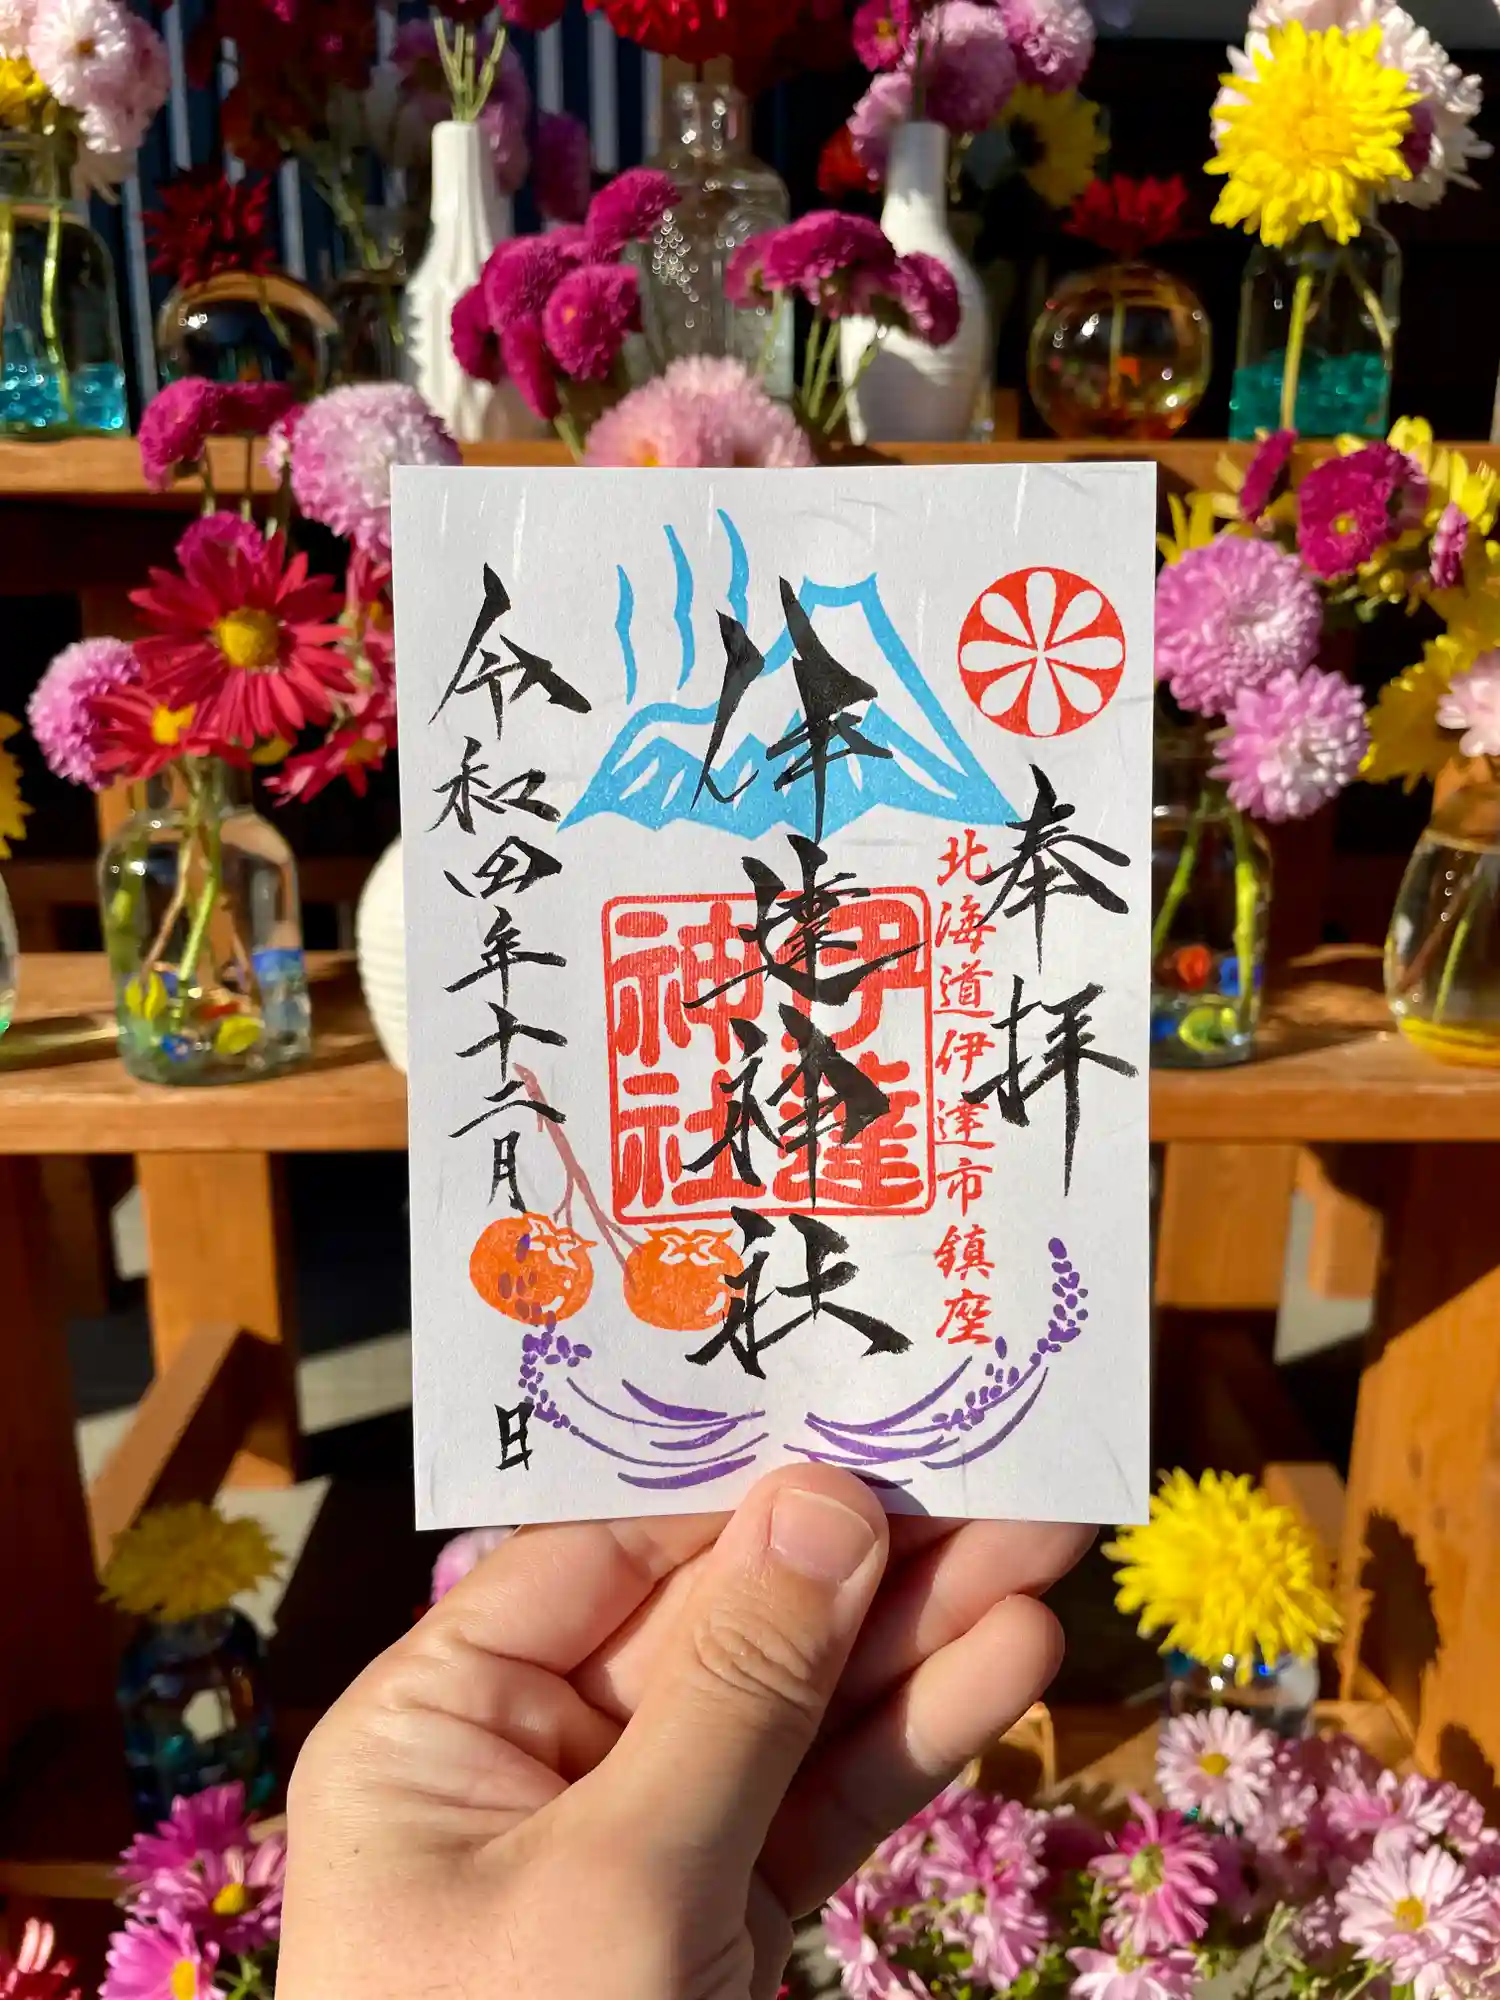 奉拝
北海道伊達市鎮座
伊達神社
伊達
神社
令和四年十二月
日